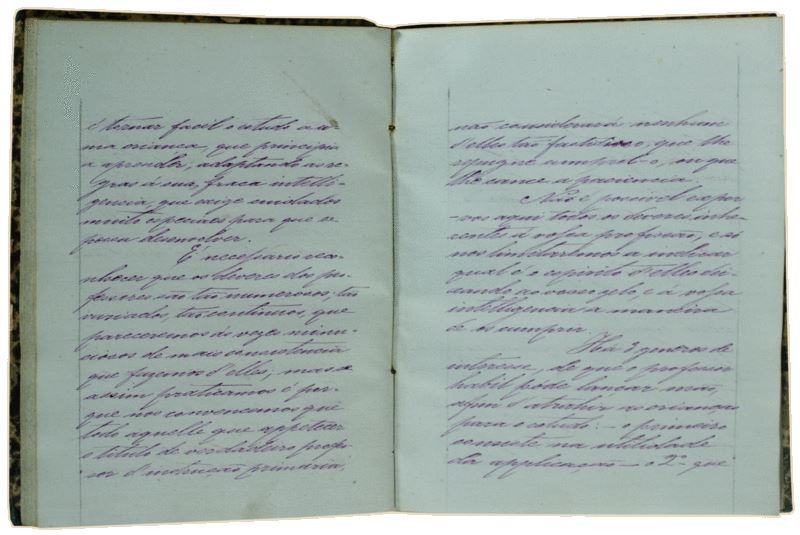 é tornar facil o estudo a u-
ma creança, que principia
a aprender, adaptando as re-
gras á sua fraca intelli-
gencia, que exige cuidados
muito especiaes para que se
possa desenvolver.
É necessario reco-
nhecer que os deveres dos pro-
fessores são tão numerosos, tão
variados, tão continuos, que
pareceremos ás vezes minu-
ciosos de mais na
que fazemos d'elles; mas se
assim praticamos é por-
que nos convencemos que
todo aquelle que appetecer
o titulo de verdadeiro profes-
sor d'instrucção primaria,
não considerará nenhum
d'elles tão fastidioso, que lhe
repugne cumpril-o, ou que
lhe cance a paciencia.
Não é possivel expor
-vos aqui todos os deveres inhe-
rentes á vossa profissão, e só
nos limitaremos a indicar
qual é o espirito d'elles dei-
xando ao vosso zelo, e á vossa
intelligencia a maneira
de os cumprir.
Há 3 generos de
interesse, de que o professor
habil póde lançar mão,
afim d'atrahir as crianças
para o estudo: - o primeiro
consiste na utilidade
da applicação - o 2º que